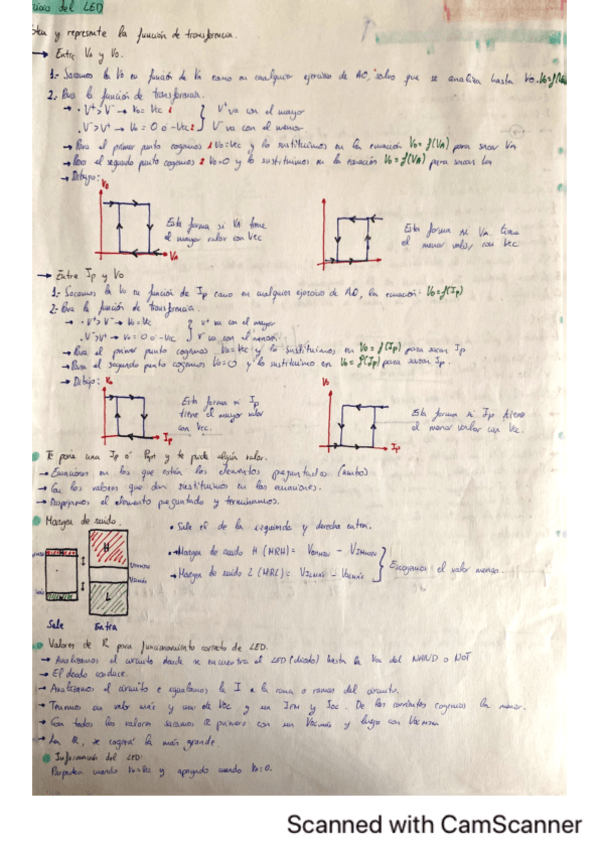 del LED
y represente la función de transferencia.
→ Entre Va y Vo.
1- Sacamos la Vo en función de Va como en cualquier ejercicio de AO, solo que se analiza hasta Vo. Vo=f(Va)
2- Para la función de transferencia.
→ · V⁺>V⁻ → Vo=Vcc } V⁺ va con el mayor
· V⁻>V⁺ → Vo = 0 ó -Vcc } V⁻ va con el menor
→ Para el primer punto cogemos Vo=Vcc y lo sustituimos en la ecuación Vo=f(VA) para sacar VA
→ Para el segundo punto cogemos Vo=0 y lo sustituimos en la ecuación Vo=f(VA) para sacar
→ Dibujo:
Vo
VA
Esta forma si VA tiene
el mayor valor con Vcc
Esta forma si VA tiene
el menor valor con Vcc
→ Entre Ip y Vo
1- Sacamos la Vo en función de Ip como en cualquier ejercicio de AO, la ecuación Vo=f(Ip)
2- Para la función de transferencia.
→ · V⁺>V⁻ → Vo=Vcc } V⁺ va con el mayor
· V⁻>V⁺ → Vo = 0 ó -Vcc } V⁻ va con el menor
→ Para el primer punto cogemos Vo=Vcc y lo sustituimos en Vo = f(Ip) para sacar Ip
→ Para el segundo punto cogemos Vo=0 y lo sustituimos en Vo = f(Ip) para sacar Ip.
→ Dibujo:
Vo
Ip
Esta forma si Ip
tiene el mayor valor
con Vcc.
Vo
Ip
Esta forma si Ip tiene
el menor valor con Vcc.
Te ponen una Ip ó y te pide algún valor.
→ Ecuaciones en los que están los elementos preguntados
→ Con los valores que dan sustituimos en las ecuaciones.
→ Despejamos el elemento preguntado y terminamos.
Margen de ruido.
H
L
Sale
Entra
• Sale el de la izquierda y derecha entra.
→ Margen de ruido H (MRH) = VOHMIN - VIHMIN
→ Margen de ruido L (MRL) = VILMAX - VOLMAX
} Escogemos el valor menor.
Valores de R para funcionamiento correcto de LED.
→ Analizamos el circuito donde se encuentra el LED (diodo) hasta la del NAND o NOT
→ El diodo conduce.
→ Analizamos el circuito e igualamos la I a la rama o ramas del circuito.
→ Tenemos un valor máx y min de Vcc y un y De las corrientes cogemos la menor.
→ Con todos los valores sacamos R primero con un y luego con
→ La R, se cogerá la más grande
Información del LED:
cuando Vo=Vcc y apagado cuando Vo=0.
Scanned with CamScanner